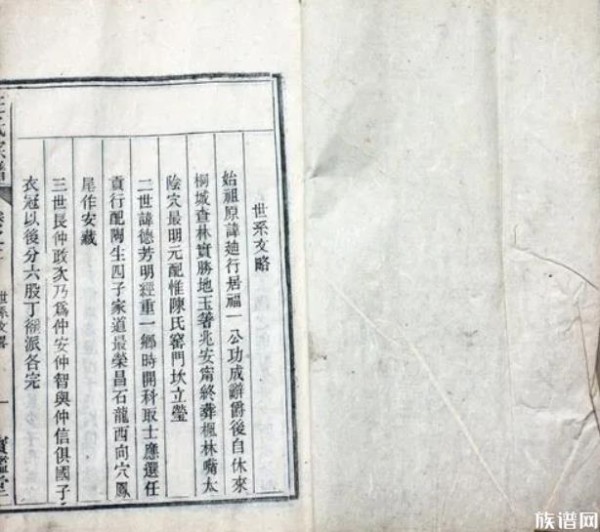 世系文略
始祖原諱廸行居福一公功成辭爵後自休來
桐城查林實勝地玉著兆安甯終葬楓林嘴太
陰穴最明元配惟陳氏窰門坎立瑩
二世諱德芳明經重一鄉時開科取士應選任
貢行配陶生四子家道最榮昌石龍西向穴鳳
尾作安藏
三世長仲敢次乃爲仲安仲智與仲信俱國子
衣冠以後分六股丁徭派各完
氏家譜
卷之
世系文畧
一
寶
堂
族谱网